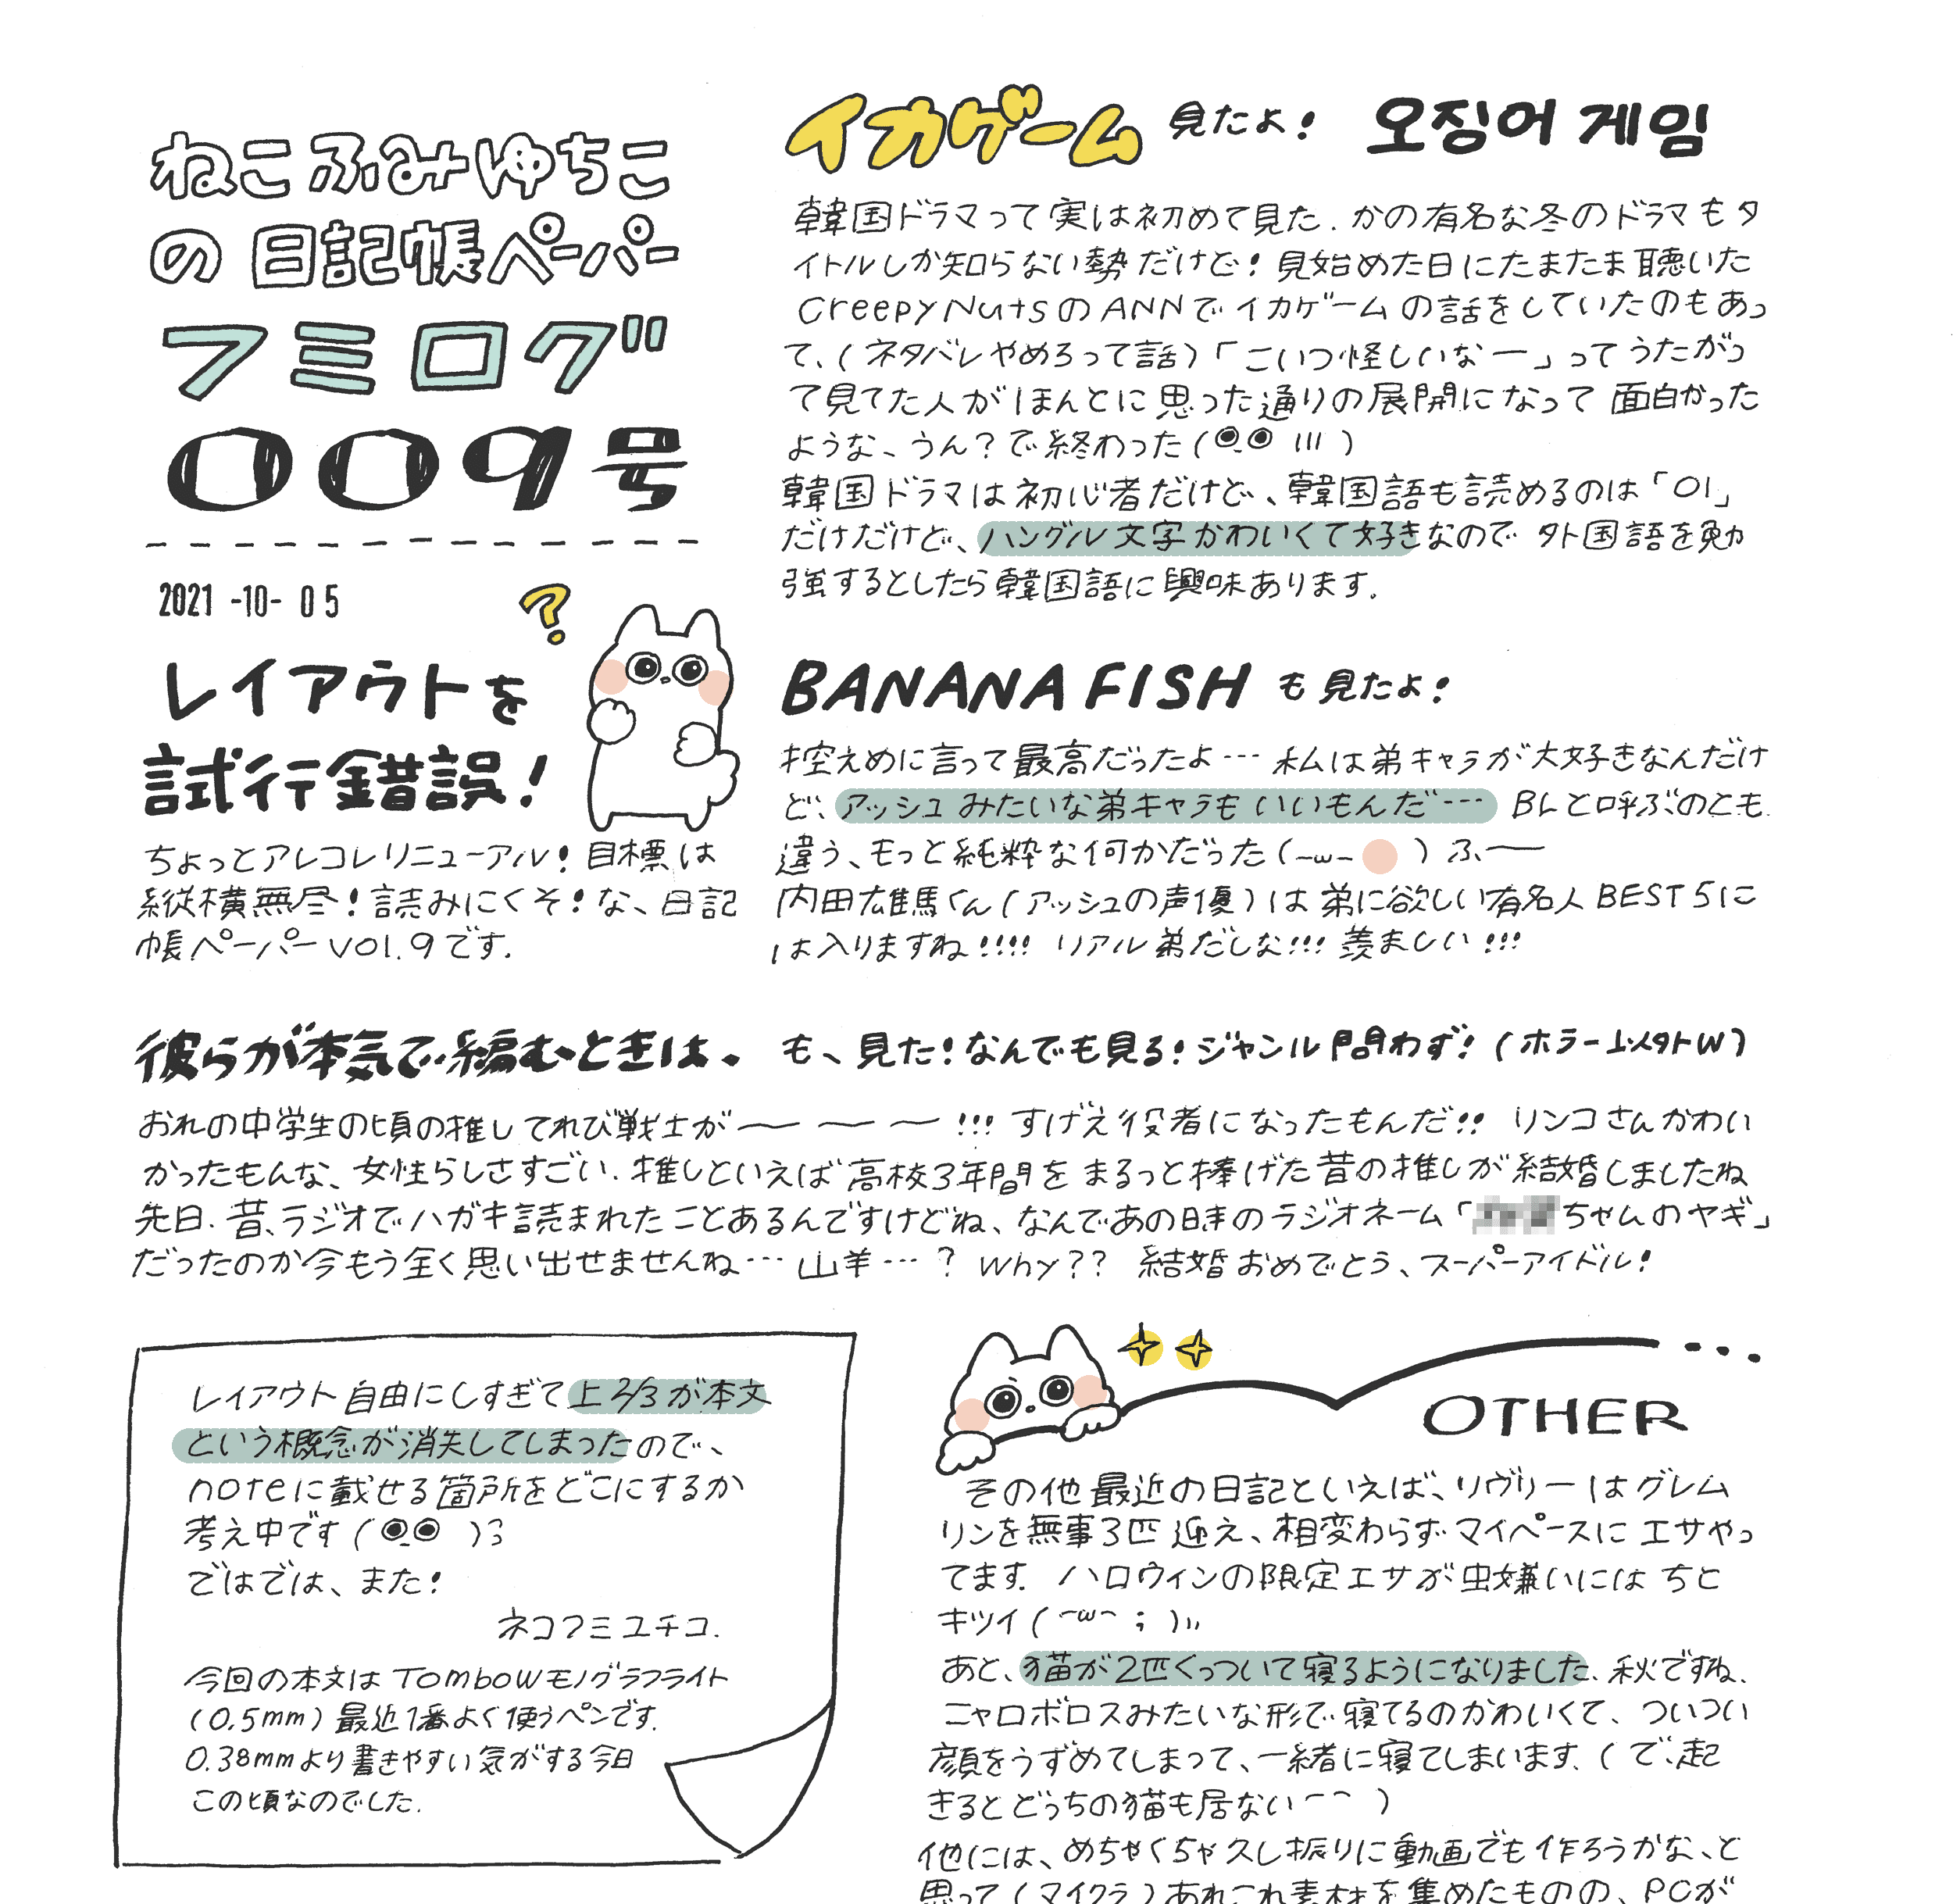 ねこふみゆちこ
の日記帳ペーパー
フミログ
009号
2021 -10- 05
?
レイアウトを
試行錯誤!
ちょっとアレコレリニューアル!目標は
縦横無尽!読みにくそ!な、日記
帳ペーパーvol.9です.
イカゲーム 見たよ! 오징어 게임
韓国ドラマって実は初めて見た.かの有名な冬のドラマもタ
イトルしか知らない勢だけど!見始めた日にたまたま聴いた
CreepyNutsのANNでイカゲームの話をしていたのもあっ
て、(ネタバレやめろって話)「こいつ怪しいなー」ってうたがっ
て見てた人がほんとに思った通りの展開になって面白かった
ような、うん?で終わった( )
韓国ドラマは初心者だけど、韓国語も読めるのは「이」
だけだけど、ハングル文字かわいくて好きなので外国語を勉
強するとしたら韓国語に興味あります.
BANANA FISH も見たよ!
控えめに言って最高だったよ… 私は弟キャラが大好きなんだけ
ど、アッシュみたいな弟キャラもいいもんだ… BLと呼ぶのとも
違う、もっと純粋な何かだった(-ω- )ふー
内田雄馬くん(アッシュの声優)は弟に欲しい有名人BEST5に
は入りますね!!!! リアル弟だしな!!! 羨ましい!!!
彼らが本気で編むときは、 も、見た!なんでも見る!ジャンル問わず!(ホラー以外w)
おれの中学生の頃の推してれび戦士が〜〜〜!!! すげえ役者になったもんだ!! リンコさんかわい
かったもんな、女性らしさすごい.推しといえば高校3年間をまるっと捧げた昔の推しが結婚しましたね
先日.昔、ラジオでハガキ読まれたことあるんですけどね、なんであの日本のラジオネーム「ちゃんのヤギ」
だったのか今もう全く思い出せませんね…山羊…? why?? 結婚おめでとう、スーパーアイドル!
レイアウト自由にしすぎて上2/3が本文
という概念が消失してしまったので、
noteに載せる箇所をどこにするか
考え中です( )
ではでは、また!
ネコフミユチコ.
今回の本文はTombowモノグラフライト
(0.5mm)最近1番よく使うペンです.
0.38mmより書きやすい気がする今日
この頃なのでした.
OTHER
その他最近の日記といえば、リヴリーはグレム
リンを無事3匹迎え、相変わらずマイペースにエサやっ
てます. ハロウィンの限定エサが虫嫌いにはちと
キツイ(-ω-;)
あと、猫が2匹くっついて寝るようになりました.秋ですね.
ニャロボロスみたいな形で寝てるのかわいくて、ついつい
顔をうずめてしまって、一緒に寝てしまいます.(で、起
きるとどっちの猫も居ない )
他には、めちゃくちゃ久し振りに動画でも作ろうかな、と
思って(マイクラ)あれこれ素材を集めたものの、PCが